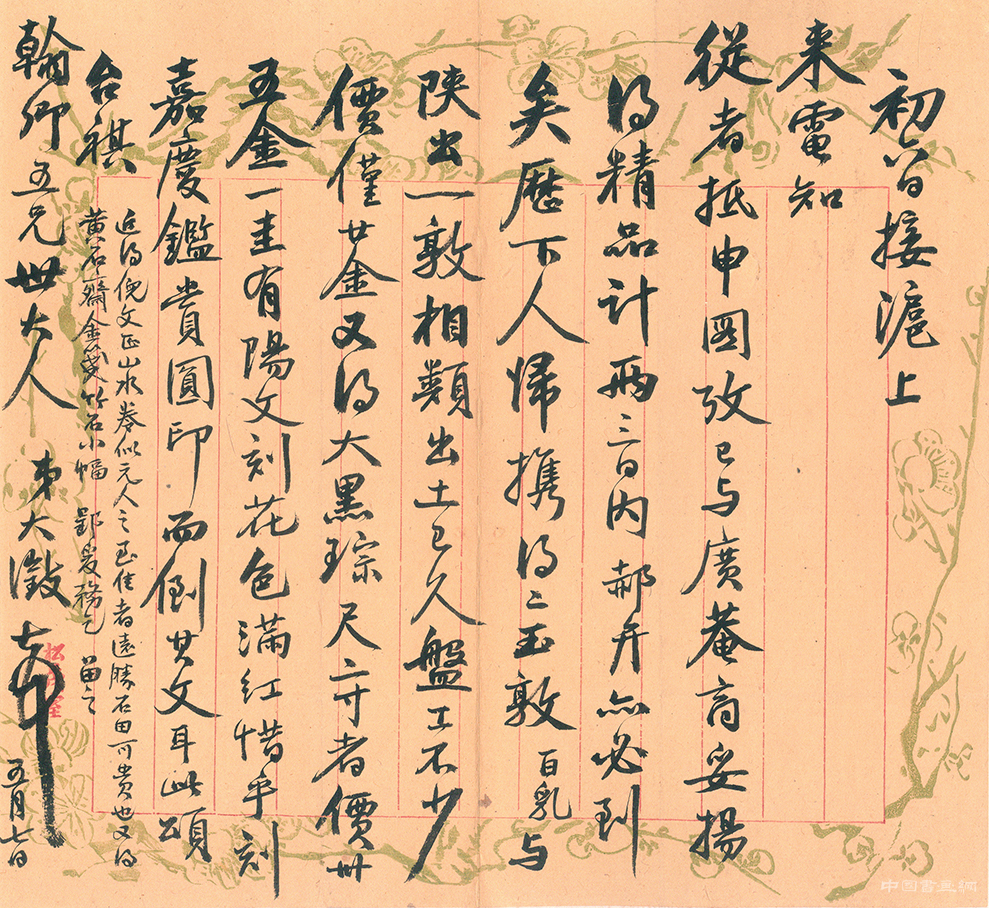 初六日接滬上
來電知
從者抵申圖攷已与廣菴商妥揚
得精品計兩三日內郝弁亦必到
矣歷下人歸攜得二玉敦百乳与
陝出一敦相類出土已久盤工不少
價僅廿金又得大黑琮尺六寸者價卅
五金一圭有陽文刻花色滿紅惜乎刻
嘉慶鑑賞圓印而倒其文耳此頌
台祺
近得倪文正山水卷似元人之至佳者遠勝石田可貴也又得
黃石齋金箋竹石小幅 鄙愛務乞 留之
翰卿五兄世大人 弟大澂 頓首 五月七日
松茂室
中国書畫網